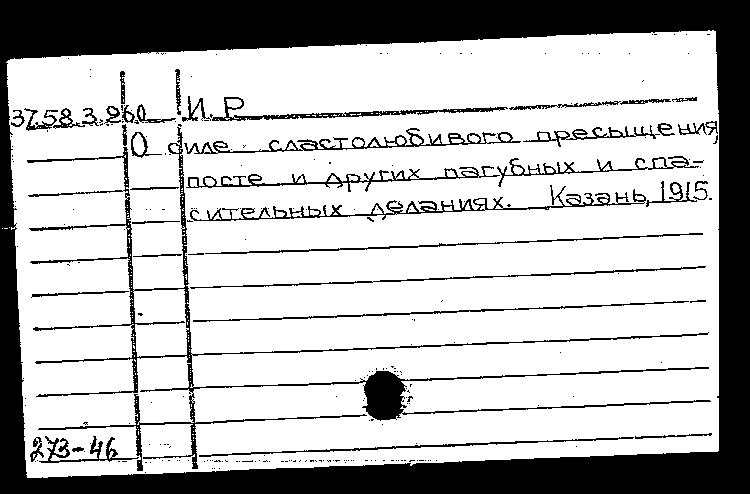 37.58.3.260 И. Р
О силе сластолюбивого пресыщения,
посте и других пагубных и спа-
сительных деланиях. Казань, 1915.
273-46